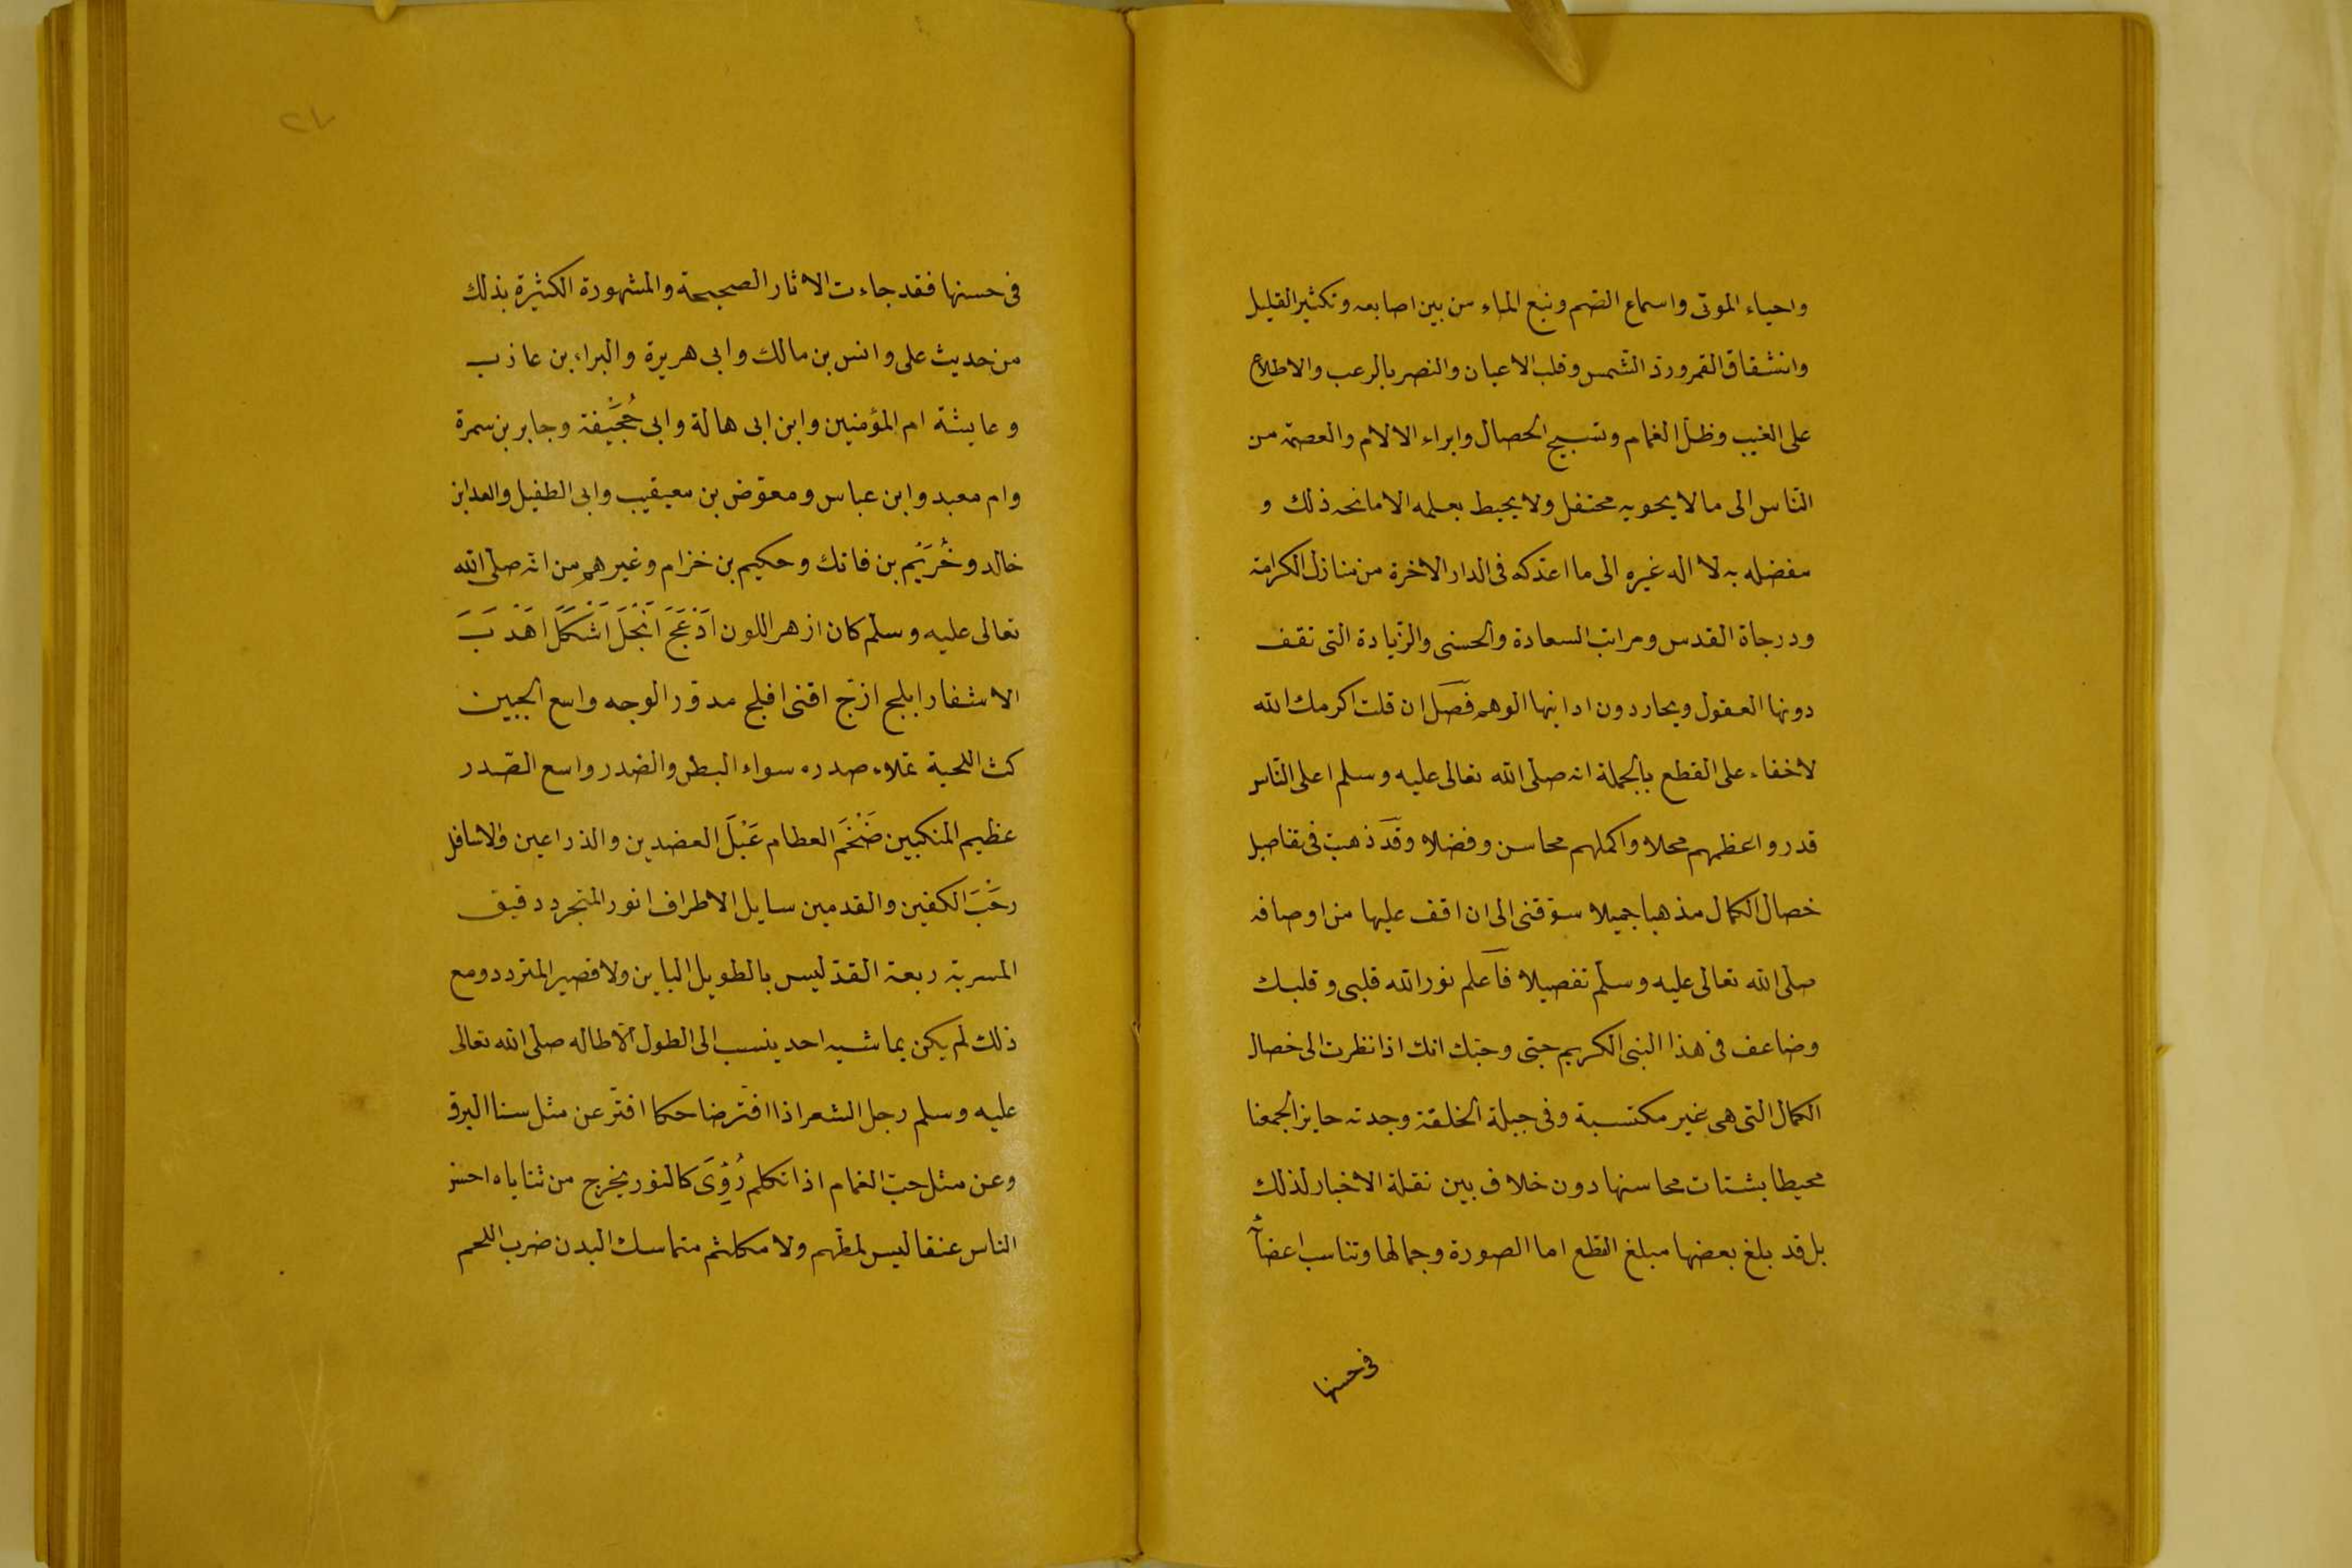 واحياء الموتى واسماع الصم ونبع الماء من بين اصابعه وتكثير القليل
وانشقاق القمر ورد الشمس وقلب الاعيان والنصر بالرعب والاطلاع
على الغيب وظل الغمام وتسبيح الحصال وابراء الالام والعصمة من
الناس الى ما لا يحويه محتفل ولا يحيط بعلمه الا مانحه ذلك و
مفضله به لا اله غيره الى ما اعد كه فى الدار الاخرة من منازل الكرامة
ودرجاة القدس ومراتب السعادة والحسنى والزيادة التى تقف
دونها العقول ويحار دون ادانيها الوهم فصل ان قلت اكرمك الله
لا خفاء على القطع بالجملة انه صلى الله تعالى عليه وسلم اعلى الناس
قدر واعظمهم محلا واكملهم محاسن وفضلا وقد ذهبت فى تفاصيل
خصال الكمال مذهبا جميلا سوقنى الى ان اقف عليها من اوصافه
صلى الله تعالى عليه وسلم تفصيلا فاعلم نور الله قلبى وقلبك
وضاعف فى هذا النبى الكريم حبى وحبك انك اذا نظرت الى خصال
الكمال التى هى غير مكتسبة وفى جبلة الخلقة وجدته حايز الجمعنا
محيطا بشتات محاسنها دون خلاف بين نقلة الاخبار لذلك
بل قد بلغ بعضها مبلغ القطع اما الصورة وجمالها وتناسب اعضائه
فى حسنها
٢٧
فى حسنها فقد جاءت الاثار الصحيحة والمشهورة الكثيرة بذلك
من حديث على وانس بن مالك وابى هريرة والبراء بن عازب
وعايشة ام المؤمنين وابن ابى هالة وابى حُجَيفة وجابر بن سمرة
وام معبد وابن عباس ومعوض بن معيقيب وابى الطفيل والعدابن
خالد وخُرَيْم بن فاتك وحكيم بن خزام وغيرهم من انه صلى الله
تعالى عليه وسلم كان ازهر اللون اَدْعَجَ اَنْجَلَ اَشْكَلَ اَهْدَبَ
الاشفار ابلج ازج اقنى افلج مدور الوجه واسع الجبين
كث اللحية تملاء صدره سواء البطن والصدر واسع الصدر
عظيم المنكبين ضَخْمَ العظام عَبْلَ العضدين والذراعين والاسافل
رَحْبَ الكفين والقدمين سايل الاطراف انور المتجرد دقيق
المسربة ربعة القد ليس بالطويل الباين ولا قصير المتردد ومع
ذلك لم يكن يماشيه احد ينسب الى الطول الا طاله صلى الله تعالى
عليه وسلم رجل الشعر اذا افتر ضاحكا افتر عن مثل سنا البرق
وعن مثل حب الغمام اذا تكلم رُؤِىَ كالنور يخرج من ثناياه احسن
الناس عنقا ليس بمطهم ولا مكلثم متماسك البدن ضرب اللحم